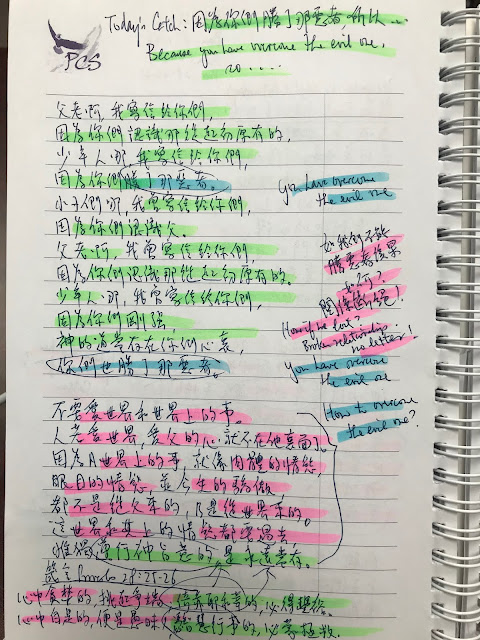 Today's Catch: 因為你們勝了那惡者,所以....
Because you have overcome the evil one,
so .....
PCS
父老啊,我寫信給你們,
因為你們認識那從起初原有的,
少年人哪,我寫信給你們,
因為你們勝了那惡者。
小子們哪,我曾寫信給你們,
因為你們認識父。
父老啊,我曾寫信給你們,
因為你們認識那從起初原有的。
少年人哪,我曾寫信給你們,
因為你們剛強,
神的道常存在你們心裏,
你們也勝了那惡者。
you have overcome
the evil one
如我們不能
勝惡者後果
如何?
關係斷絕!
How if we lost?
Broken relationship.
no letter!
you have overcome
the evil one
How to overcome
the evil one?
不要愛世界和世界上的事。
人若愛世界,愛父的心就不在他裏面了。
因為凡世界上的事,就像肉體的情慾,
眼目的情慾,並今生的驕傲
都不是從父來的,乃是從世界來的。
這世界和其上的情慾都要過去
惟獨遵行神旨意的是永遠常存。
箴言 Proverbs 28:25-26
心中貪婪的,挑起爭端;倚靠耶和華的,必得豐裕
心中自是的,便是愚昧人;憑智慧行事的,必蒙拯救。